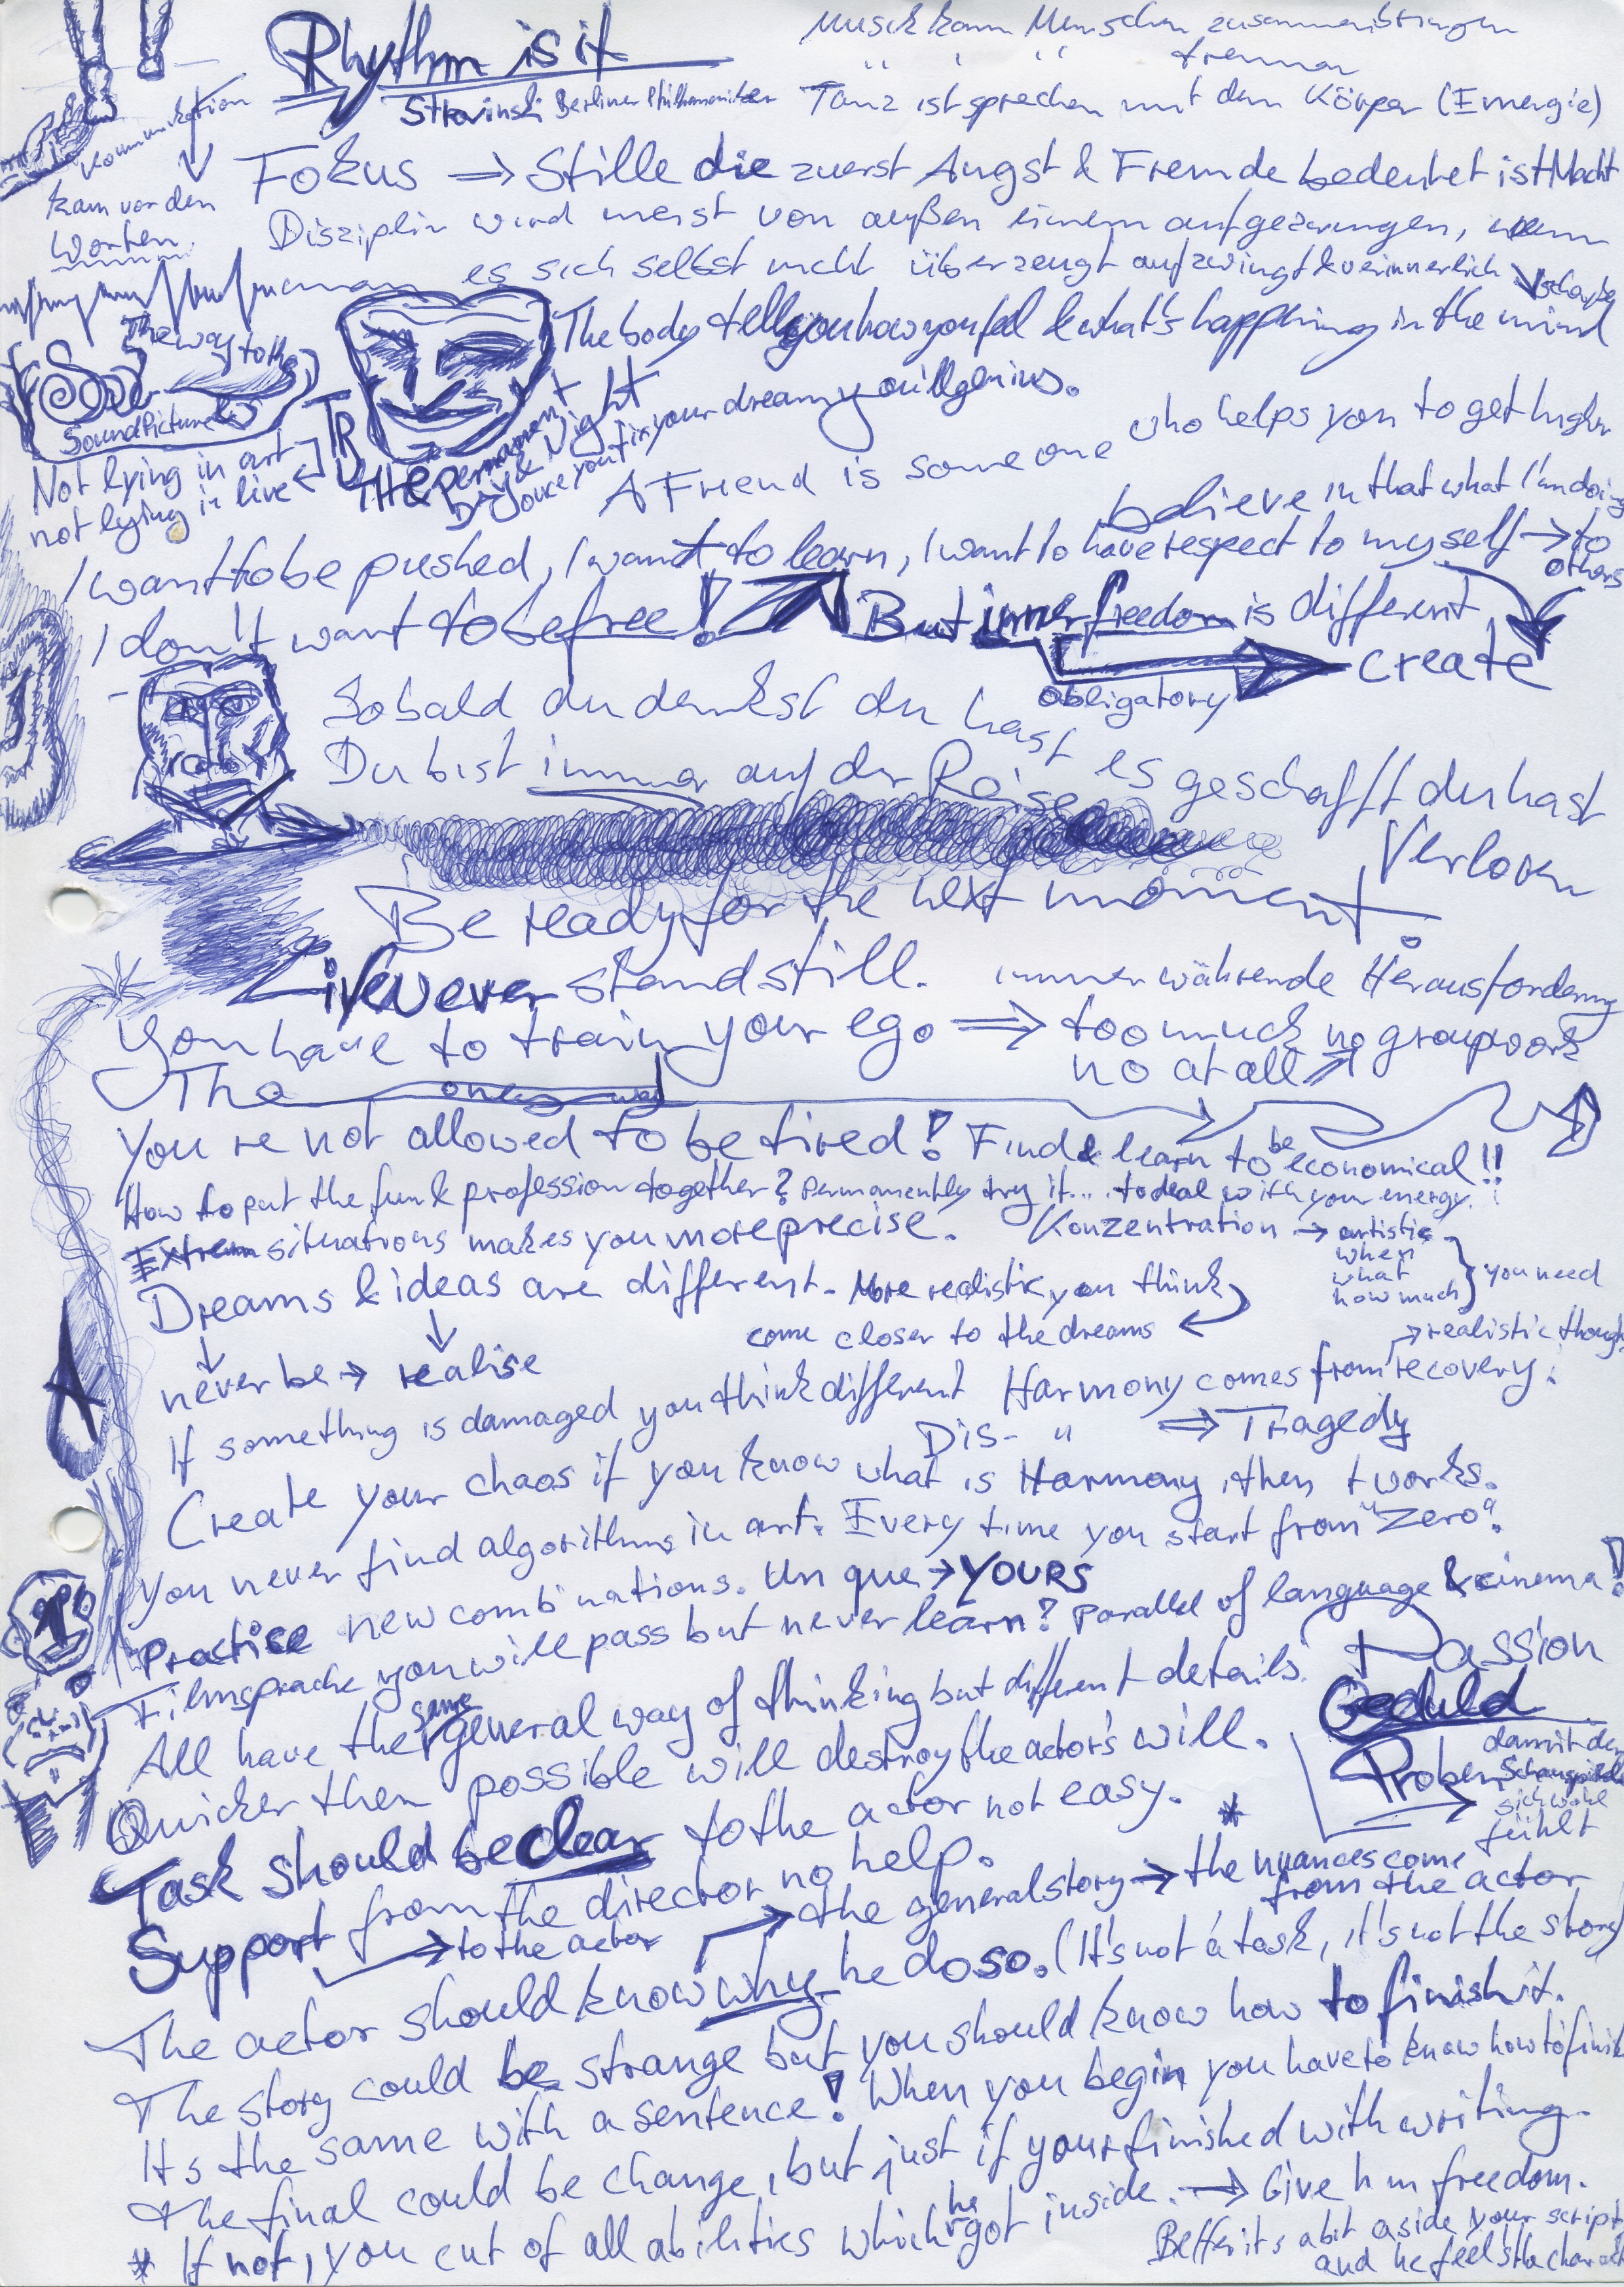 Rhythm is it
Musik kann Menschen zusammenbringen
" " " trennen
Stravinski Berliner Philharmoniker Tanz ist sprechen mit dem Körper (Energie)
Kommunikation
kam vor den
Worten
Fokus → Stille die zuerst Angst & Fremde bedeutet ist Macht
Disziplin wird meist von außen einem aufgezwungen, wenn
es sich selbst nicht überzeugt aufzwingt & verinnerlich
The body tells you how you feel & what's happening in the mind
The way to the
Sound Picture
Not lying in art
not lying in live
The permanent
Day & Night
Once you fix your dream you'll genius.
A Friend is someone who helps you to get higher
believe in that what I'm doing
I want to be pushed, I want to learn, I want to have respect to my self → to
others
I don't want to be free! But inner freedom is different
obligatory create
Sobald du denkst du hast es geschafft du hast
Verloren
Du bist immer auf der Reise
Be ready for the next moment!
Life never stand still. immerwährende Herausforderung
You have to train your ego ⇒ too much no groupwork
no at all
The one way
You re not allowed to be tired! Find & learn to be economical!!
How to put the fun & profession together? Permanently try it... to deal with your energy!
Extrem situations makes you more precise. Konzentration → artistic
when
what
how much } you need
Dreams & ideas are different. More realistic you think
come closer to the dreams
→ realistic though
never be → realise
If something is damaged you think different Harmony comes from recovery!
Dis- " ⇒ Tragedy
Create your chaos if you know what is Harmony, then t works.
You never find algorithms in art. Every time you start from "Zero".
Practise new combinations. Unique → YOURS
Filmsprache you will pass but never learn? Parallel of language & cinema!
All have the same general way of thinking but different details.
Passion
Geduld
Proben
damit der
Schauspieler
sich wohl
fühlt
Quicker then possible will destroy the actor's will.
Task should be clear to the actor not easy. *
Support from the director no help.
→ to the actor → the general story → the nuances come
from the actor
The actor should know why he do so. (It's not a task, it's not the story)
The story could be strange but you should know how to finish it.
It s the same with a sentence! When you begin you have to know how to finish
The final could be change, but just if your finished with writing.
* If not, you cut of all abilities which he got inside. → Give him freedom.
Better it s a bit aside your script
and he feels the charact